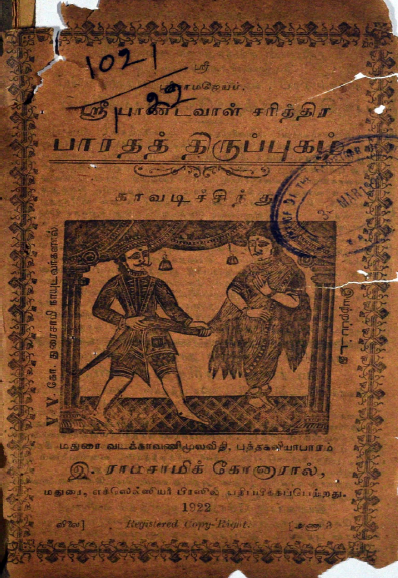 1021
22
ஸ்ரீ
ஸ்ரீராமஜெயம்.
ஸ்ரீ பாண்டவாள் சரித்திர
பாரதத் திருப்புகழ்
காவடிச்சிந்து
V. V. கோ. துரைசாமி
மதுரை வடக்காவணிமூலவீதி, புத்தகவியாபாரம்
இ. ராமசாமிக் கோனாரால்,
மதுரை, எக்ஸெல்ஸியர் பிரஸில் பதிப்பிக்கப்பெற்றது.
1922
விலை] Registered Copy-Right. [அணா